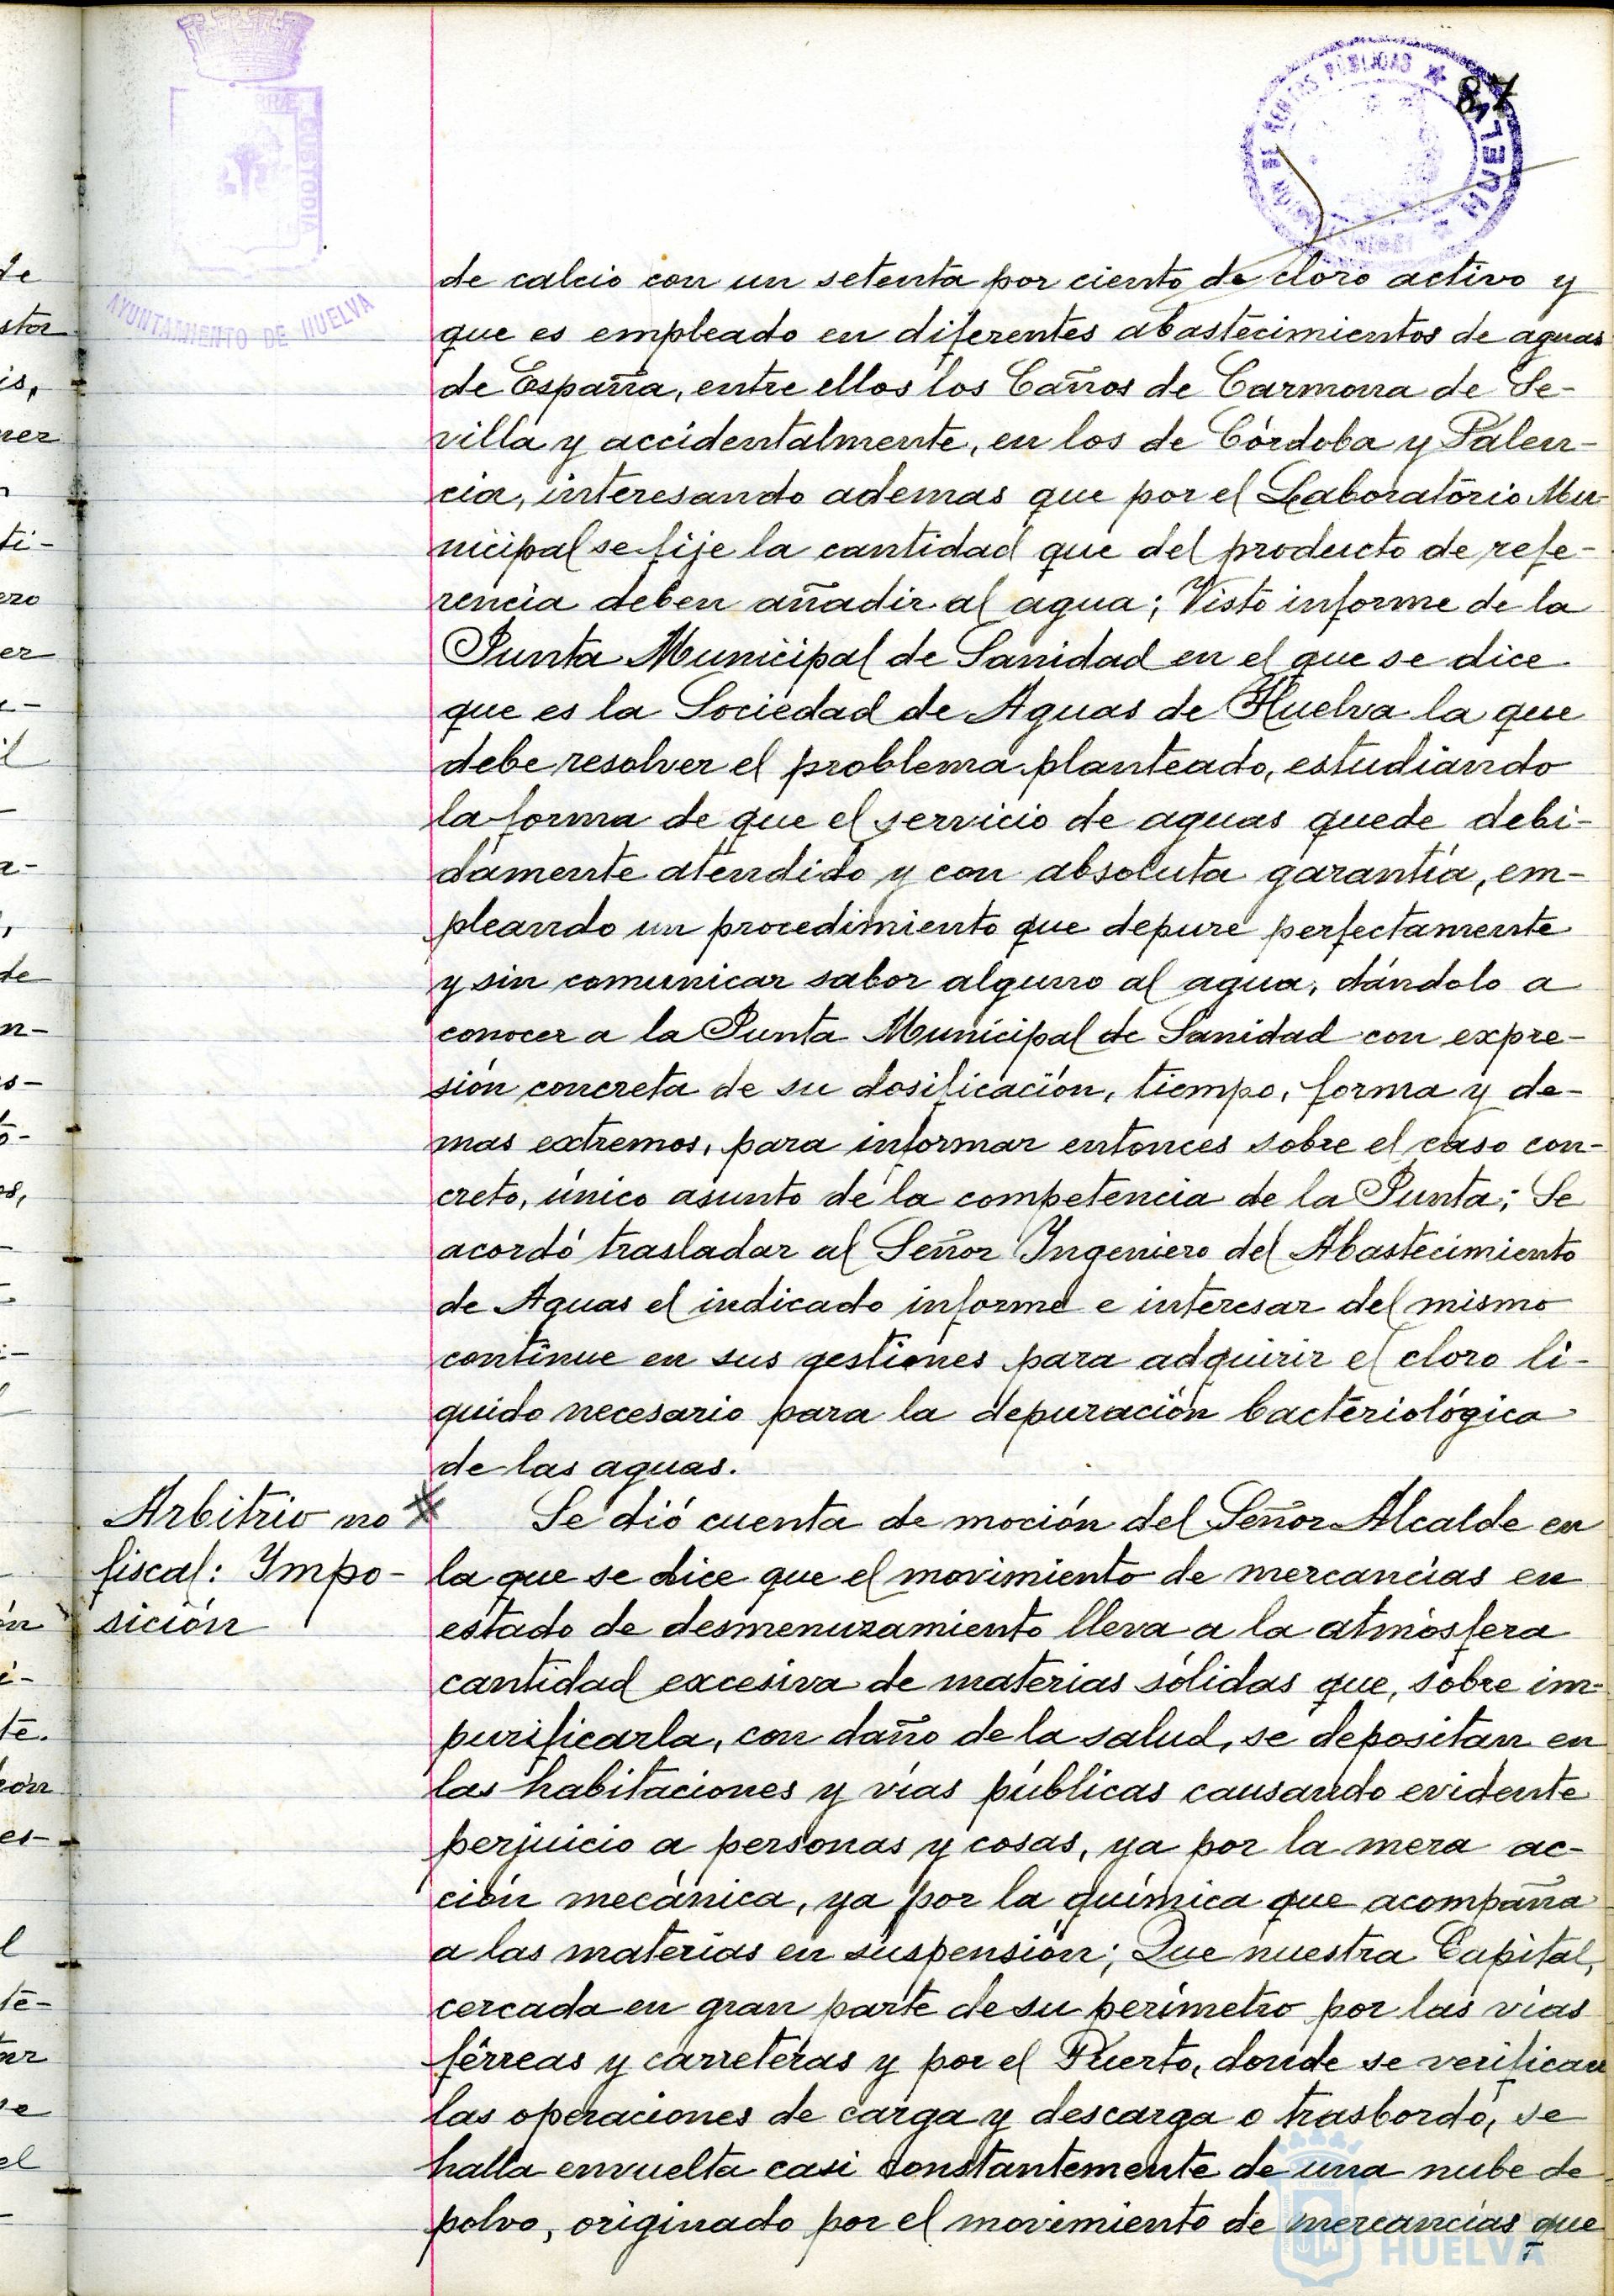 87
HUELVA
AYUNTAMIENTO DE HUELVA
de calcio con un setenta por ciento de cloro activo y
que es empleado en diferentes abastecimientos de aguas
de España, entre ellos los Caños de Carmona de Se-
villa y accidentalmente, en los de Córdoba y Palen-
cia, interesando ademas que por el Laboratorio Mu-
nicipal se fije la cantidad que del producto de refe-
rencia deben añadir al agua; Visto informe de la
Junta Municipal de Sanidad en el que se dice
que es la Sociedad de Aguas de Huelva la que
debe resolver el problema planteado, estudiando
la forma de que el servicio de aguas quede debi-
damente atendido y con absoluta garantía, em-
pleando un procedimiento que depure perfectamente
y sin comunicar sabor alguno al agua, dándolo a
conocer a la Junta Municipal de Sanidad con expre-
sión concreta de su dosificación, tiempo, forma y de-
mas extremos, para informar entonces sobre el caso con-
creto, único asunto de la competencia de la Junta; Se
acordó trasladar al Señor Ingeniero del Abastecimiento
de Aguas el indicado informe e interesar del mismo
continue en sus gestiones para adquirir el cloro li-
quido necesario para la depuración bacteriológica
de las aguas.
Arbitrio no
fiscal: Impo-
sición
Se dió cuenta de moción del Señor Alcalde en
la que se dice que el movimiento de mercancías en
estado de desmenuzamiento lleva a la atmósfera
cantidad excesiva de materias sólidas que, sobre im-
purificarla, con daño de la salud, se depositan en
las habitaciones y vías públicas causando evidente
perjuicio a personas y cosas, ya por la mera ac-
ción mecánica, ya por la química que acompaña
a las materias en suspensión; Que nuestra Capital,
cercada en gran parte de su perímetro por las vías
férreas y carreteras y por el Puerto, donde se verifican
las operaciones de carga y descarga o trasbordo, se
halla envuelta casi constantemente de una nube de
polvo, originado por el movimiento de mercancías que
HUELVA